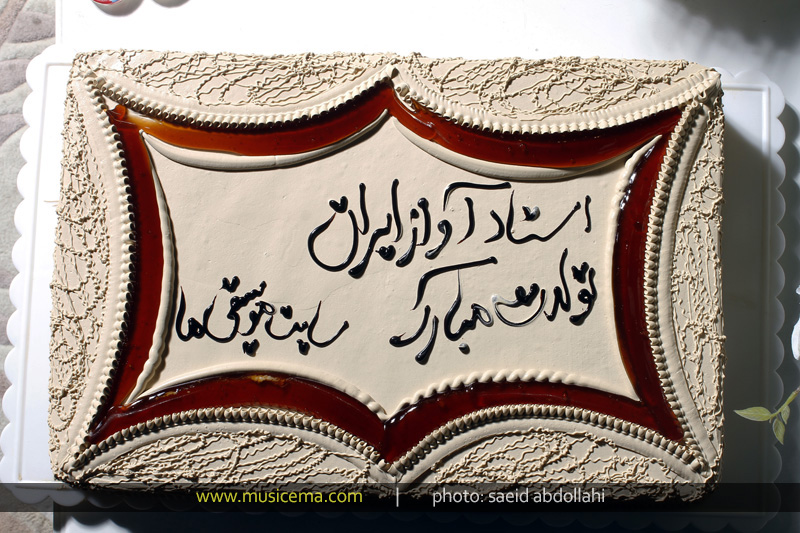 استاد آواز ایران
تولدت مبارک
سایت موسیقی ما
www.musicema.com | photo: saeid abdollahi